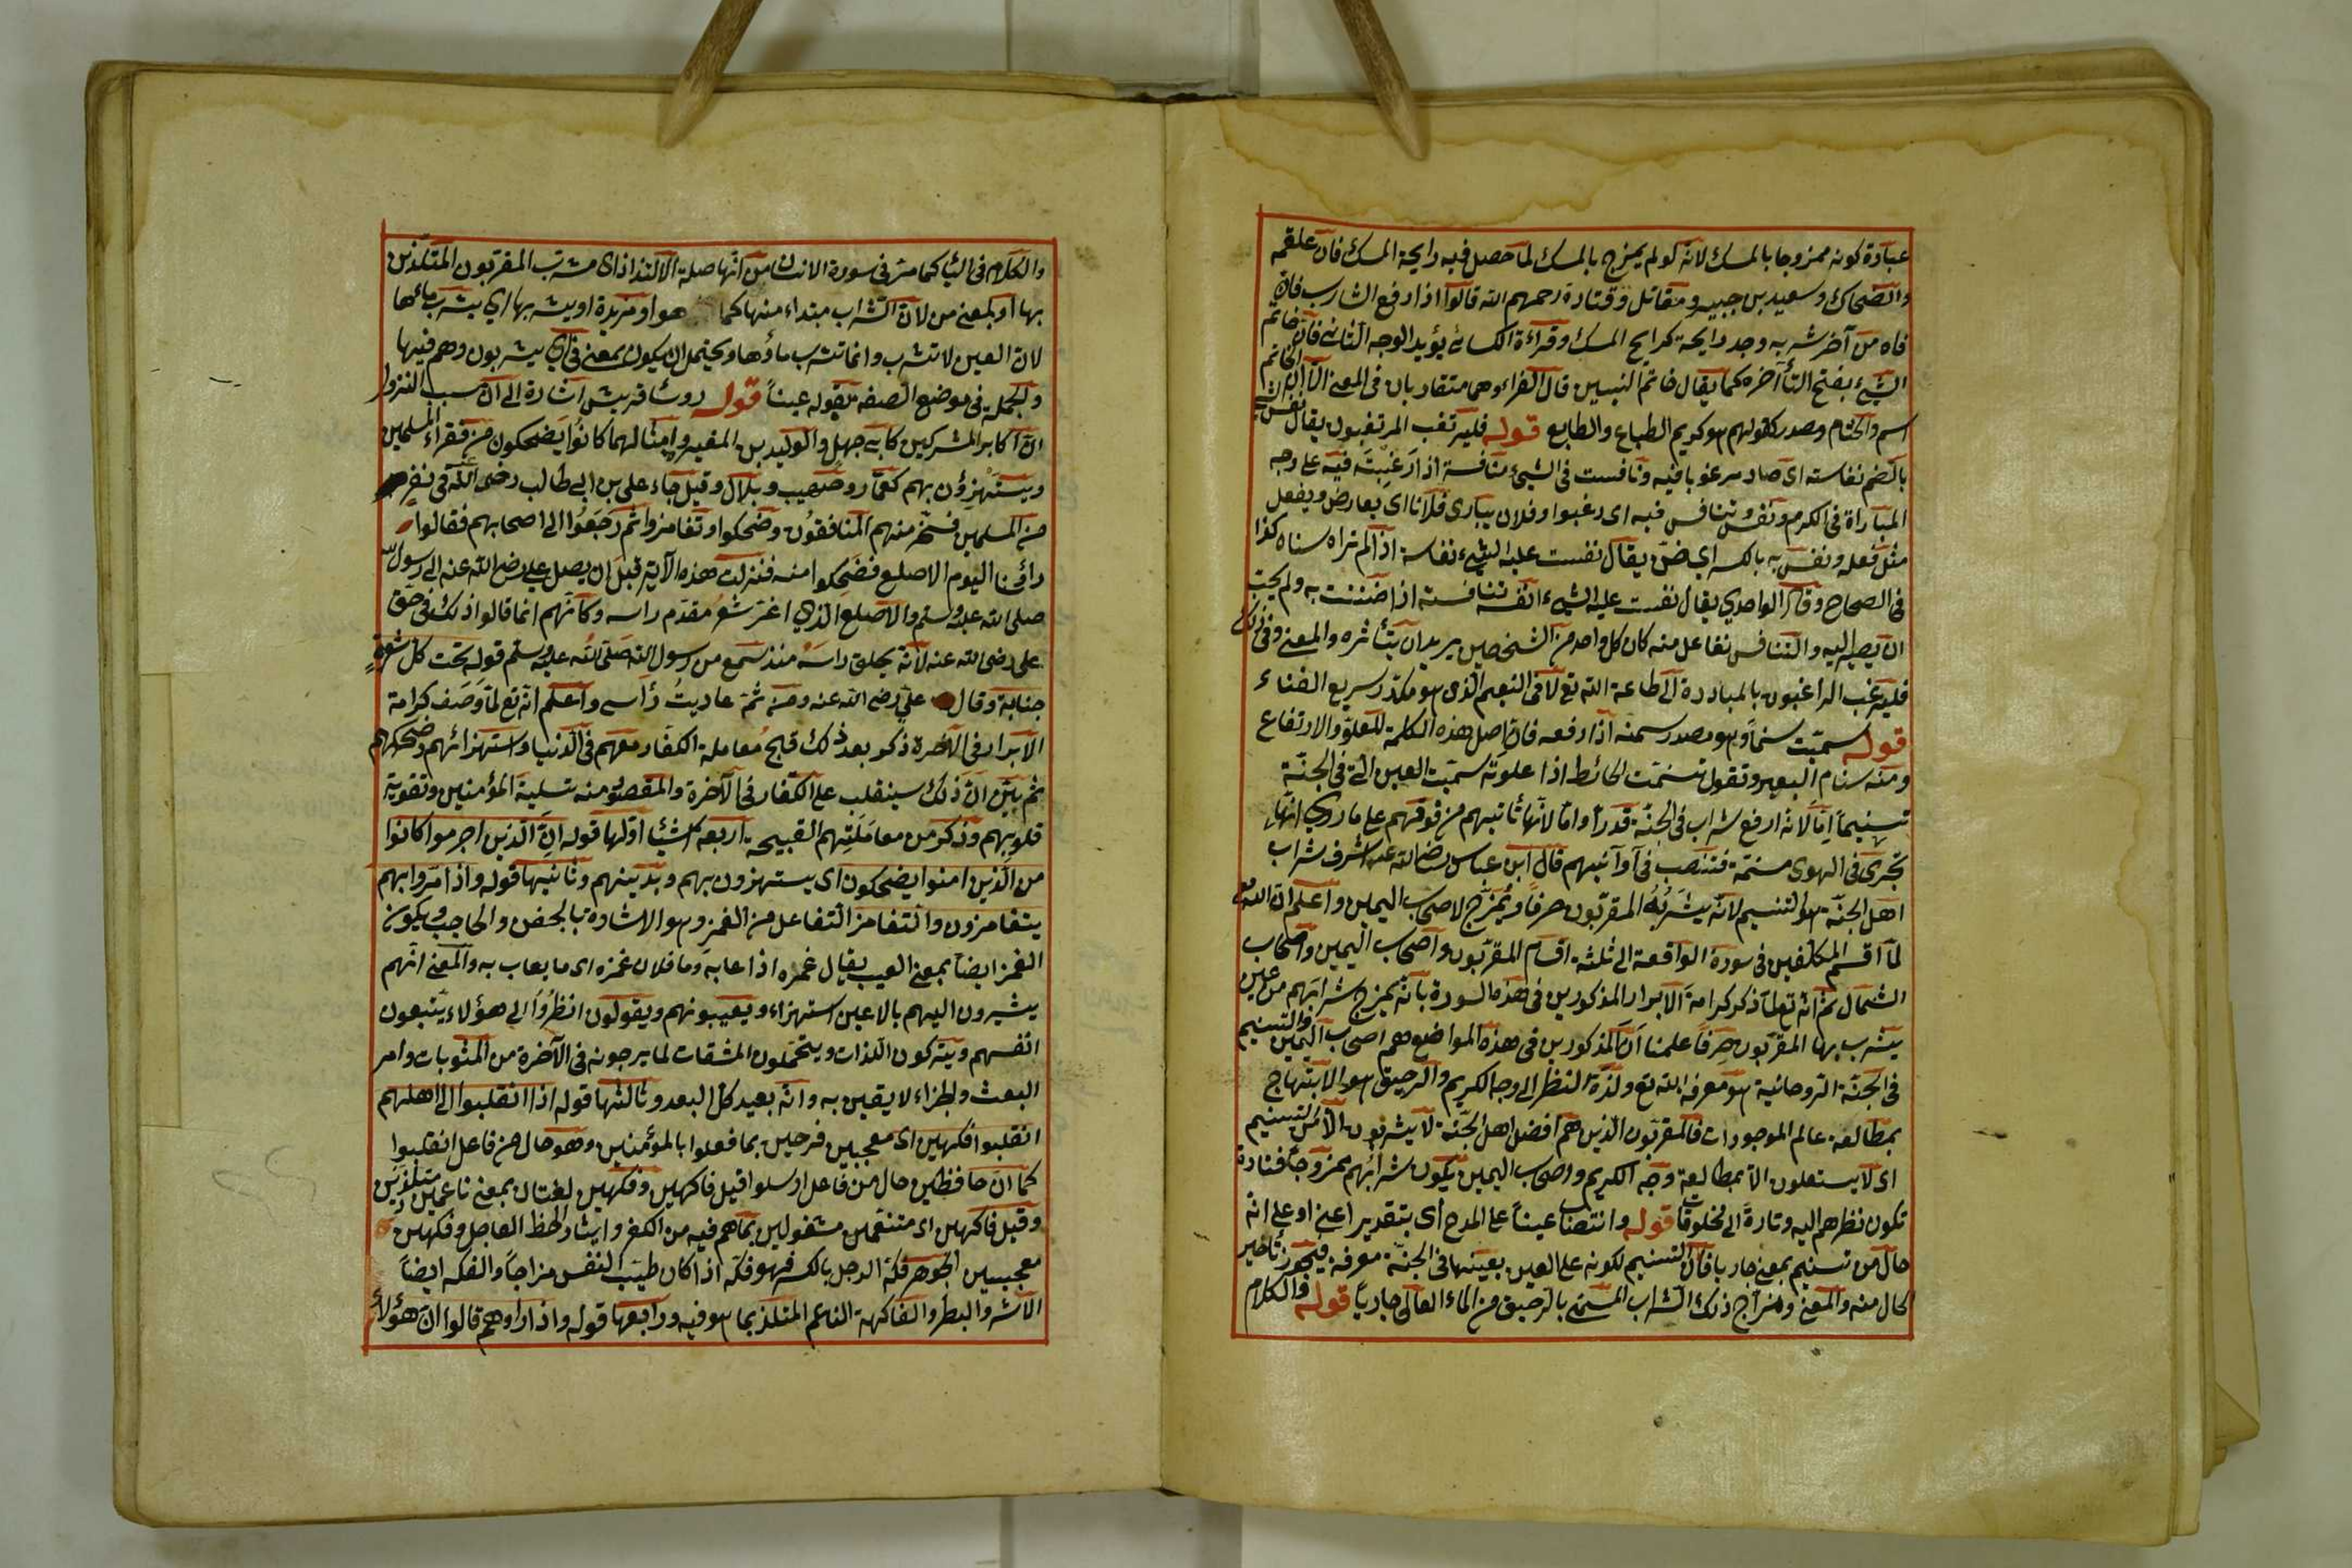 عبارة كونه ممزوجا بالمسك لانه لو لم يمزج بالمسك لما حصل فيه رايحة المسك فان علقمة
والضحاك وسعيد بن جبير ومقاتل وقتادة رحمهم الله قالوا اذا رفع الشارب فان
فاه من آخر شربه وجد رايحة كرايح المسك وقراءة الكسائى يؤيد الوجه الثانى فان خاتم
الشيء بفتح التآ آخره كما يقال خاتم النبيين قال الفراء وهما متقاربان فى المعنى الا ان الخاتم
اسم والختام مصدر كقولهم هو كريم الطباع والطابع قوله فليرتغب المرتغبون يقال نفس الشئ
بالضم نفاسة اى صار مرغوبا فيه ونافست فى الشيء منافسة اذا رغبت فيه على وجه
المباراة فى الكرم ونفس وتنافس فيه اى رغبوا وفلان يبارى فلانا اى يعارض ويفعل
مثل فعله ونفس به بالكسر اي ضن يقال نفست عليه الشيء نفاسة اذا لم تراه سناه كذا
فى الصحاح وقال الواحدي يقال نفست عليه الشيء انفسه نفاسة اذا ضننت به ولم يحب
ان يصير اليه والتنافس تفاعل منه كان كل واحد من الشخصين يريد ان يتأثره والمعنى وفى ذلك
فليرغب الراغبون بالمبادرة الى طاعة الله تع لا فى النعيم الذى هو مكدر سريع الفناء
قوله سميت سنما وهو مصدر سمنه اذا رفعه فان اصل هذه الكلمة للعلو والارتفاع
ومنه سنام البعير وتقول تسنمت الحائط اذا علوته سميت العين التى فى الجنة
تسنيما اما لانه ارفع شراب فى الجنة قدرا واما لانها تاتيهم من فوقهم على ما روي انها
تجرى فى الهوى مسنمة فتنصب فى آوانيهم قال ابن عباس رضى الله عنه اشرف شراب
اهل الجنة هو التسنيم لانه يشربه المقربون صرفا ويمزج لاصحاب اليمين واعلم ان الله تع
لما اقسم المكلفين فى سورة الواقعة الى ثلثة اقسام المقربون واصحاب اليمين واصحاب
الشمال ثم انه تع لما ذكر كرامة الابرار المذكورين فى هذه السورة بانه يمزج شرابهم من عين
يشرب بها المقربون صرفا علمنا ان المذكورين فى هذه المواضع هم اصحاب اليمين والتسنيم
فى الجنة الروحانية هو معرفة الله تع ولذة النظر الى وجه الكريم والرحيق هو الابتهاج
بمطالعة عالم الموجودات فالمقربون الذين هم افضل اهل الجنة لا يشربون الا من التسنيم
اى لا يستعلون الا بمطالعة وجه الكريم واصحاب اليمين يكون شرابهم ممزوجا فتارة
تكون نظرهم اليه وتارة الى مخلوقاته قوله وانتصاب عينا على المدح اى بتقدير اعنى او على انه
حال من تسنيم بمعنى جاريا فان التسنيم لكونه على العين بعينها فى الجنة معرفة فيجوز تأخير
كال منه والمعنى ومزاج ذلك الشراب المسمى بالرحيق من الماء العالى جاريا قوله والكلام
والكلام فى البآ كما مر فى سورة الانسان من انها صلة الالتذاذ اى يشرب المقربون المتلذذين
بها او بمعنى من لان الشراب مبتداء منها كما هو او مزيدة او يشربها اي يشرب مائها
لان العين لا تشرب وانما تشرب ماؤها ويحتمل ان يكون بمعنى فى اي يشربون وهم فيها
والجملة فى موضع الصفة لقوله عينا قوله روسآ قريش اشارة الى ان سبب النزول
ان اكابر المشركين كابى جهل والوليد بن المغيرة وامثالهما كانوا يضحكون من فقراء المسلمين
ويستهزؤن بهم كعمار وصهيب وبلال وقيل جاء على بن ابى طالب رضى الله عنه فى نفر
من المسلمين فسخر منهم المنافقون وضحكوا وتغامزوا ثم رجعوا الى اصحابهم فقالوا
رائينا اليوم الاصلع فضحكوا منه فنزلت هذه الآية قبل ان يصل على رضى الله عنه الى رسول الله
صلى الله عليه وسلم والاصلع الذي اغر شعر مقدم راسه وكانهم انما قالوا ذلك فى حق
على رضى الله عنه لانه يحلق راسه منذ سمع من رسول الله صلى الله عليه وسلم قوله تحت كل شعرة
جنابة وقال على رضى الله عنه ومن ثمة عاديت رأسى واعلم انه تع لما وصف كرامة
الابرار فى الآخرة ذكر بعد ذلك قبح معاملة الكفار معهم فى الدنيا واستهزائهم وضحكهم
ثم بين ان ذلك سينقلب على الكفار فى الآخرة والمقصود منه تسلية المؤمنين وتقوية
قلوبهم وذكر من معاملتهم القبيحة اربعة اشيآ اولها قوله ان الذين اجرموا كانوا
من الذين امنوا يضحكون اى يستهزون بهم وبدينهم وثانيها قوله واذا مروا بهم
يتغامزون والتغامز التفاعل من الغمز وهو الاشارة بالجفن والحاجب ويكون
الغمز ايضا بمعنى العيب يقال غمزه اذا عابه وما فلان غمزه اى ما يعاب به والمعنى انهم
يشيرون اليهم بالاعين استهزاء ويعيبونهم ويقولون انظروا الى هؤلاء يتبعون
انفسهم ويتركون اللذات ويتحملون المشقات لما يرجونه فى الآخرة من المثوبات وامر
البعث والجزاء لا يقين به وانه بعيد كل البعد وثالثها قوله اذا انقلبوا الى اهلهم
انقلبوا فكهين اى معجبين فرحين بما فعلوا بالمؤمنين وهو حال من فاعل انقلبوا
كما ان حافظين حال من فاعل ارسلوا قيل فاكهين وفكهين لغتان بمعنى ناعمين متلذذين
وقيل فاكهين اى متنعمين مشغولين بما هم فيه من الكفر وايثار الحظ العاجل وفكهين
معجبين الجوهر فكه الرجل بالكسر فهو فكه اذا كان طيب النفس مزاجا والفكه ايضا
الاشر والبطر والفاكهة الناعم المتلذذ بما هو فيه ورابعها قوله واذا راوهم قالوا ان هؤلاء